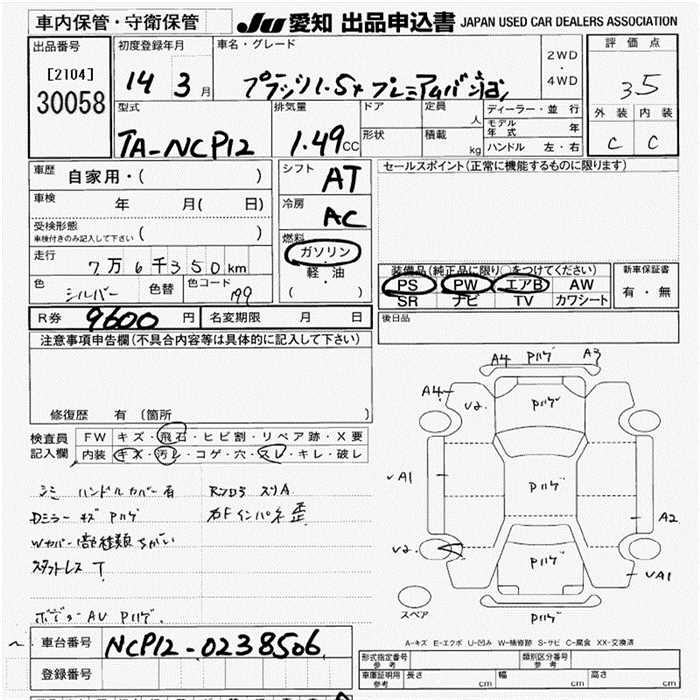 車内保管・守衛保管
JU 愛知 出品申込書 JAPAN USED CAR DEALERS ASSOCIATION
出品番号
[2104]
30058
初度登録年月
14 3 月
車名・グレード
プラッツ1.5x プレミアムバージョン
2WD
・
4WD
評価点
35
外装 内装
C C
型式
TA-NCP12
排気量
1.49 CC
ドア
形状
定員
人
積載
kg
ディーラー・並行
モデル年式 年
ハンドル 左・右
車歴
自家用・( )
車検
年 月( 日)
受検形態
車検付きのみ記入して下さい ( )
走行
7万6千350km
色
シルバー
色替
色コード
199
シフト
AT
冷房
AC
燃料
ガソリン
・
軽油
( )
セールスポイント(正常に機能するものに限ります)
装備品(純正品に限り○をつけてください)
PS PW エアB AW
SR ナビ TV カワシート
新車保証書
有・無
R券 9600 円
名変期限 月 日
後日品
注意事項申告欄(不具合内容等は具体的に記入して下さい)
修復歴 有 (箇所 )
検査員記入欄
FW キズ・飛石・ヒビ割・リペア跡・X要
内装 キズ・汚レ・コゲ・穴・スレ・キレ・破レ
シミ ハンドルカバー有
Dミラー キズ Pハゲ
Wカバー 1部種類ちがい
スタットレス T
スリA
右Fインパネ歪
Pハゲ
A4 Pハゲ A3
A4
U2.
Pハゲ
Pハゲ
Pハゲ
Pハゲ
A1
A2
U2
UA1
スペア
A-キズ E-エクボ U-凹み W-補修跡 S-サビ C-腐食 XX-交換済
車台番号
NCP12-0238506
登録番号
形式指定番号
参考
類別区分番号
参考
車庫証明用
参考
長さ cm
幅 cm
高さ cm